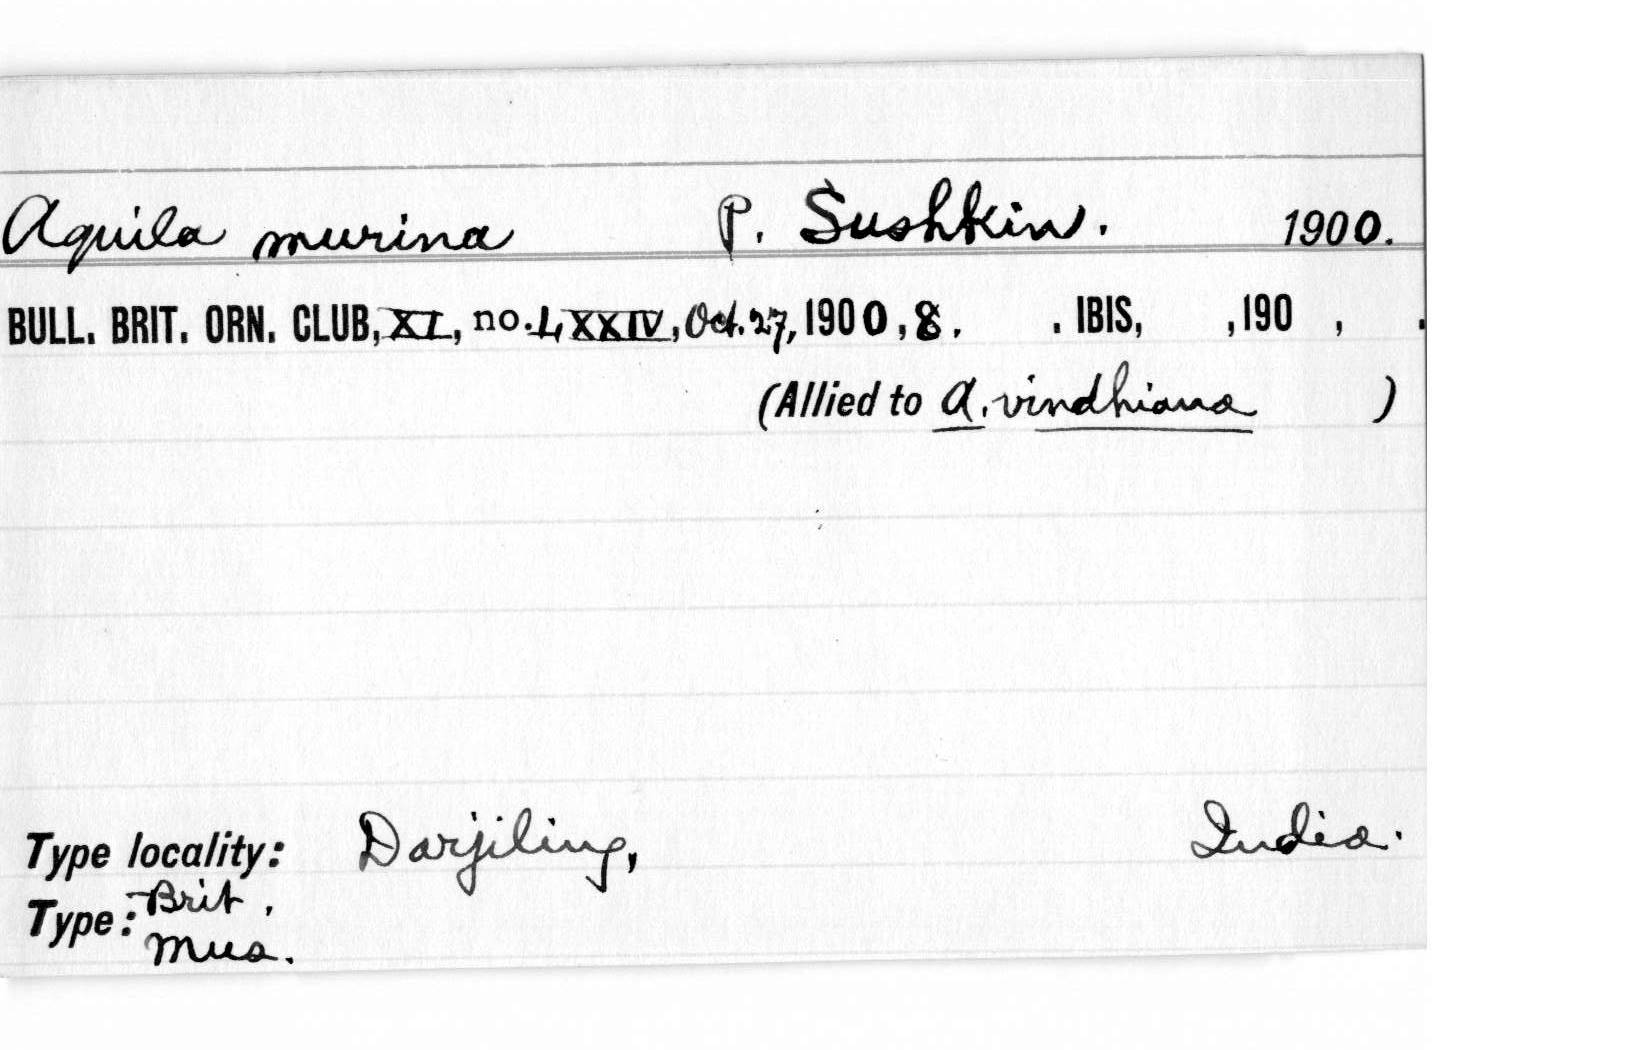 Aquila murina P. Sushkin. 1900.
BULL. BRIT. ORN. CLUB, XI, no. LXXIV, Oct. 27, 1900, 8. . IBIS, , 190 , .
(Allied to A. vindhiana )
Type locality: Darjiling, India.
Type: Brit.
Mus.